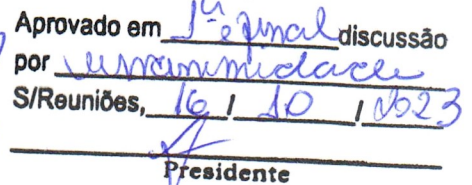 Aprovado em 1ª e final discussão
por unanimidade
S/Reuniões, 16 / 10 / 2023
Presidente